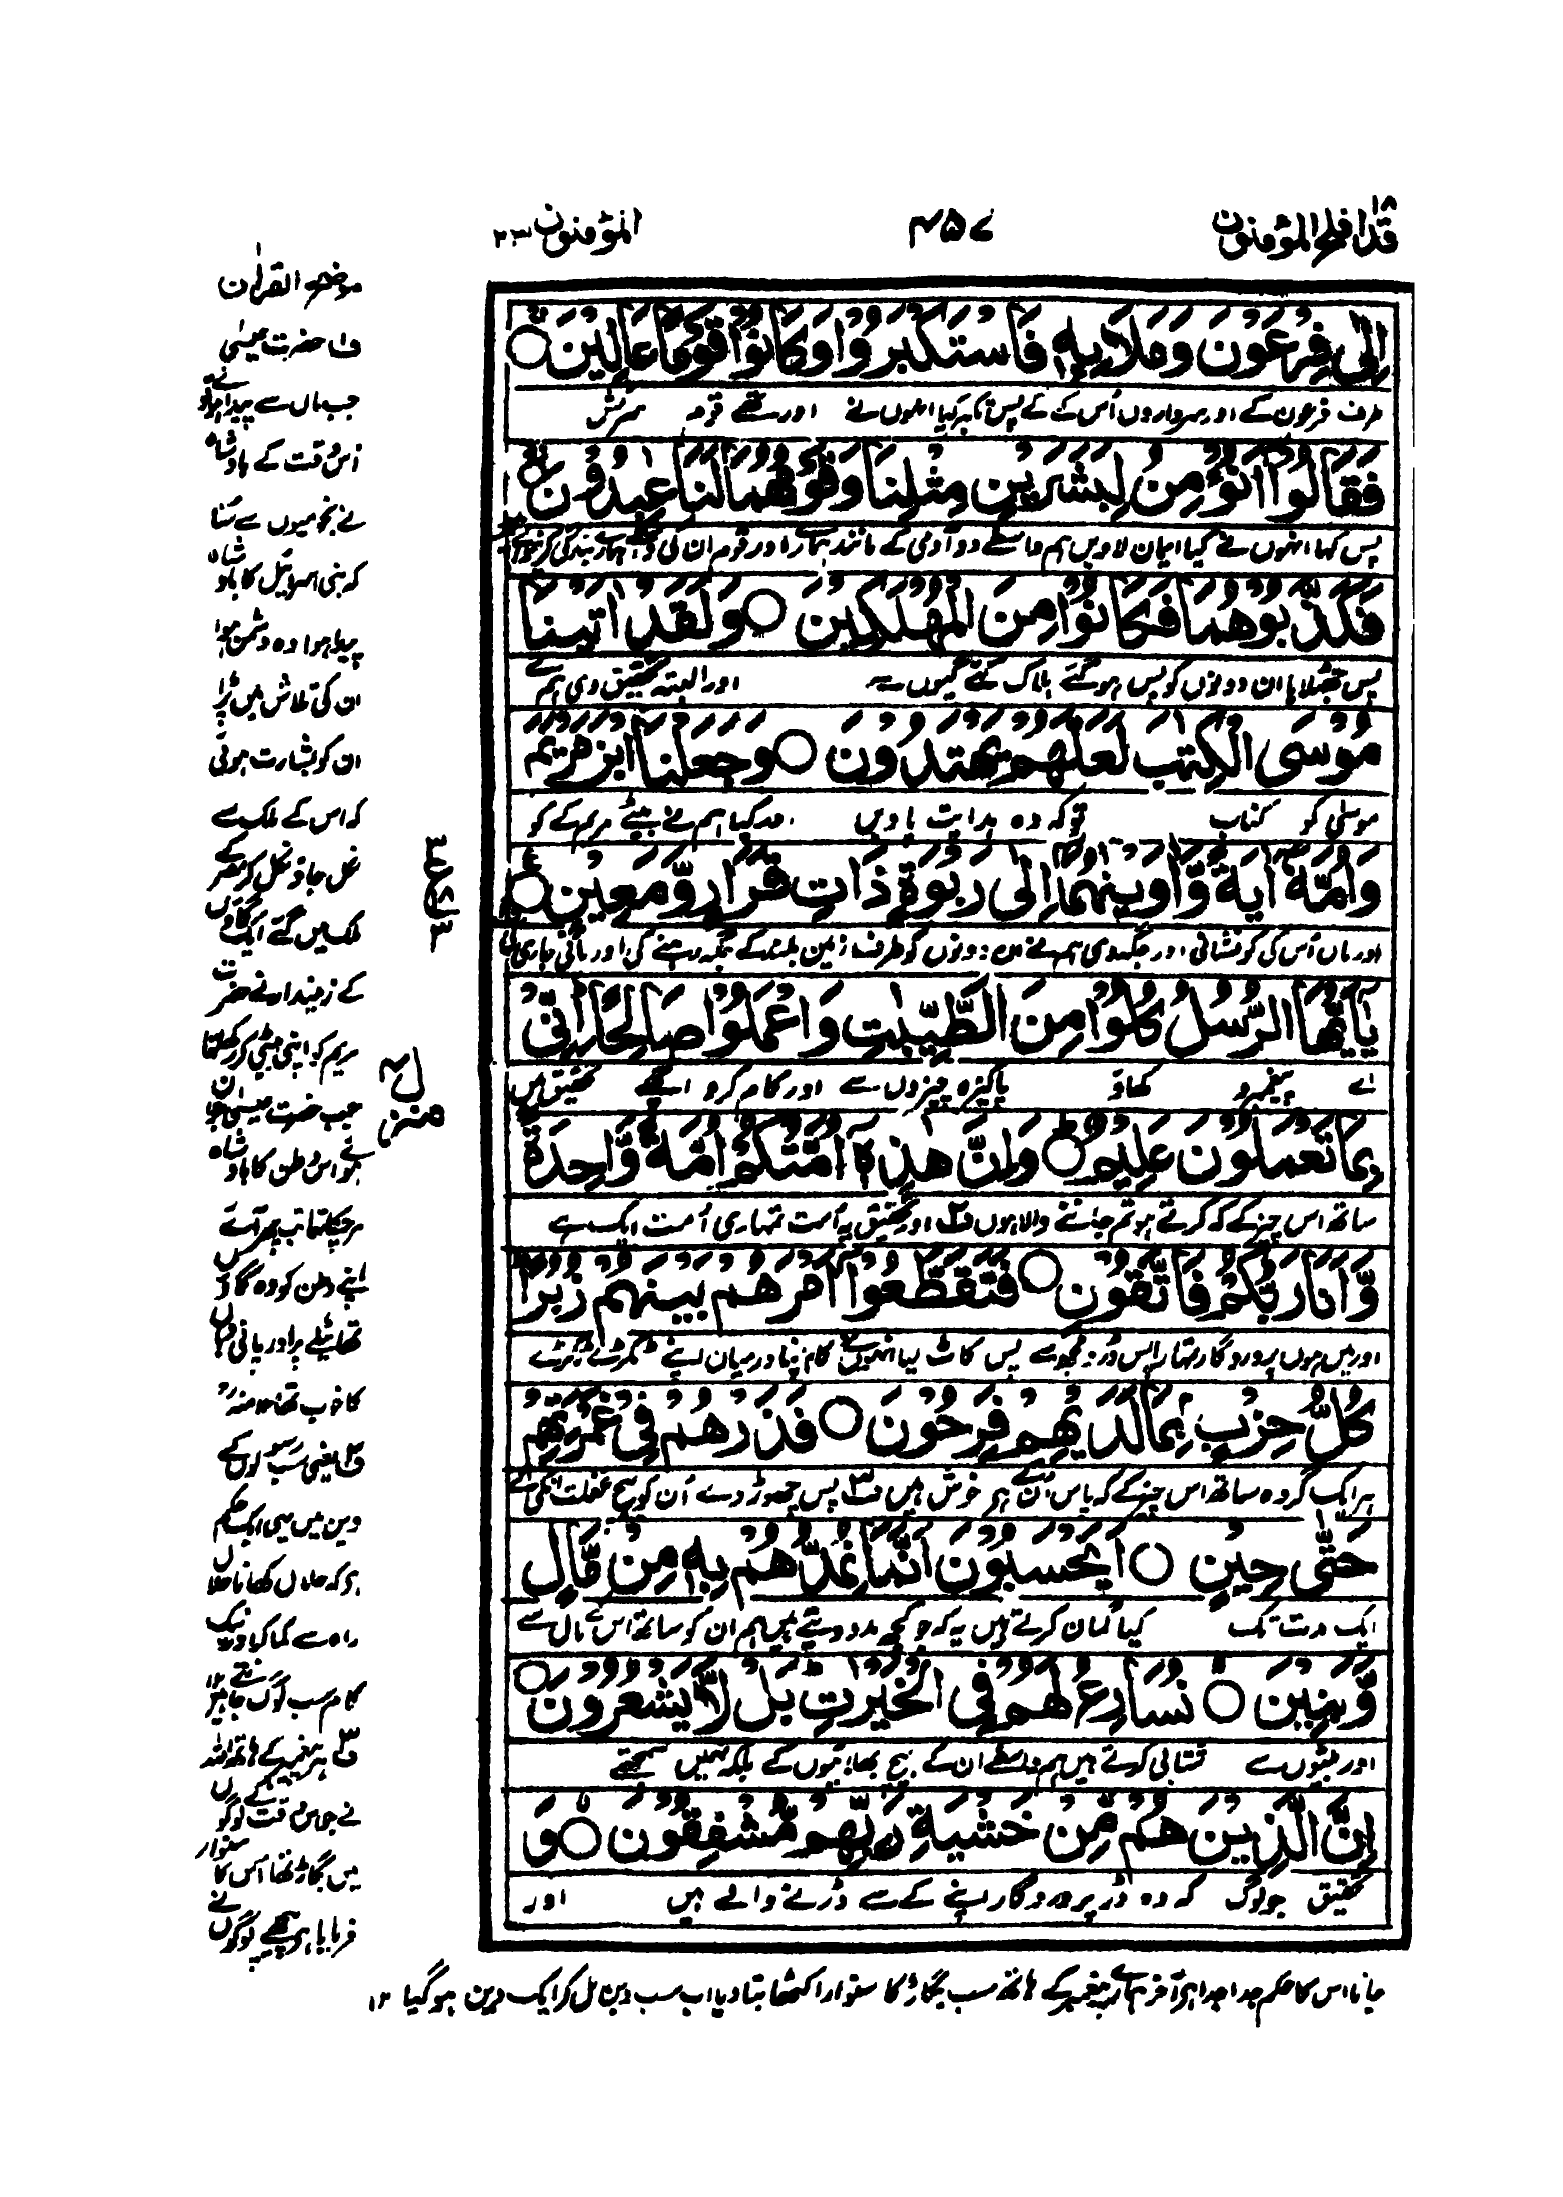 قد افلح المؤمنون ۱۸
۴۵۷
المؤمنون ۲۳
اِلٰى فِرْعَوْنَ وَمَلَا۟ئِهٖ فَاسْتَكْبَرُوْا وَكَانُوْا قَوْمًا عَالِيْنَ ○
طرف فرعون کے اور سرداروں اُس کے کے پس تکبر کیا انہوں نے اور تھے قوم سرکش
فَقَالُوْٓا اَنُؤْمِنُ لِبَشَرَيْنِ مِثْلِنَا وَقَوْمُهُمَا لَنَا عٰبِدُوْنَ ○
پس کہا انہوں نے کیا ایمان لاویں ہم واسطے دو آدمی کے مانند ہمارے اور قوم ان کی واسطے ہمارے بندگی کرنیوالے
فَكَذَّبُوْهُمَا فَكَانُوْا مِنَ الْمُهْلَكِيْنَ ○ وَلَقَدْ اٰتَيْنَا
پس جھٹلایا ان دونوں کو پس ہو گئے ہلاک کئے گیوں سے اور البتہ تحقیق دی ہم نے
مُوْسَى الْكِتٰبَ لَعَلَّهُمْ يَهْتَدُوْنَ ○ وَجَعَلْنَا ابْنَ مَرْيَمَ
موسٰی کو کتاب توکہ وہ ہدایت پاویں اور کیا ہم نے بیٹے مریم کے کو
وَاُمَّهٗٓ اٰيَةً وَّاٰوَيْنٰهُمَآ اِلٰى رَبْوَةٍ ذَاتِ قَرَارٍ وَّمَعِيْنٍ ○
اور ماں اُس کی کو نشانی اور جگہ دی ہم نے ان دونوں کو طرف زمین بلند کے جگہ رہنے کی اور پانی جاری
يٰٓاَيُّهَا الرُّسُلُ كُلُوْا مِنَ الطَّيِّبٰتِ وَاعْمَلُوْا صَالِحًا ؕ اِنِّيْ
اے پیغمبرو کھاؤ پاکیزہ چیزوں سے اور کام کرو اچھے تحقیق میں
بِمَا تَعْمَلُوْنَ عَلِيْمٌ ○ وَاِنَّ هٰذِهٖٓ اُمَّتُكُمْ اُمَّةً وَّاحِدَةً
ساتھ اس چیز کے کہ کرتے ہو تم جاننے والا ہوں ف۲ اور تحقیق یہ اُمت تمہاری اُمت ایک ہے
وَّاَنَا رَبُّكُمْ فَاتَّقُوْنِ ○ فَتَقَطَّعُوْٓا اَمْرَهُمْ بَيْنَهُمْ زُبُرًا
اور میں ہوں پروردگار تمہارا پس ڈرو مجھ سے پس کاٹ لیا انہوں نے کام اپنا درمیان اپنے ٹکڑے ٹکڑے
كُلُّ حِزْبٍۭ بِمَا لَدَيْهِمْ فَرِحُوْنَ ○ فَذَرْهُمْ فِيْ غَمْرَتِهِمْ
ہر ایک گروہ ساتھ اس چیز کے کہ پاس اُن کے ہے خوش ہیں ف۳ پس چھوڑ دے اُن کو بیچ غفلت انکی کے
حَتّٰى حِيْنٍ ○ اَيَحْسَبُوْنَ اَنَّمَا نُمِدُّهُمْ بِهٖ مِنْ مَّالٍ
ایک مدت تک کیا گمان کرتے ہیں یہ کہ جو کچھ مدد دیتے ہیں ہم ان کو ساتھ اس کے مال سے
وَّبَنِيْنَ ○ نُسَارِعُ لَهُمْ فِي الْخَيْرٰتِ ؕ بَلْ لَّا يَشْعُرُوْنَ ○
اور بیٹوں سے شتابی کرتے ہیں ہم واسطے ان کے بیچ بھلائیوں کے بلکہ نہیں سمجھتے
اِنَّ الَّذِيْنَ هُمْ مِّنْ خَشْيَةِ رَبِّهِمْ مُّشْفِقُوْنَ ○ وَ
تحقیق جو لوگ کہ وہ ڈر پروردگار اپنے کے سے ڈرنے والے ہیں اور
منزل ۴
موضح القراٰن
ف۱ حضرت عیسٰی
جب ماں سے پیدا ہوئے
اُس وقت کے بادشاہ
نے نجومیوں سے سنا
کہ بنی اسرائیل کا بادشاہ
پیدا ہوا وہ دشمن ہوا
ان کی تلاش میں پڑا
ان کو بشارت ہوئی
کہ اس کے ملک سے
نکل جاؤ نکل کر مصر کے
ملک میں گئے ایک گاؤں
کے زمیندار نے حضرت
مریم کو اپنی بیٹی کر رکھا
جب حضرت عیسٰی جوان
ہوئے اس وطن کا بادشاہ
مرچکا تھا تب پھر آئے
اپنے وطن کو وہ گاؤں
تھا ٹیلے پر اور پانی وہاں
کا خوب تھا ۱۲ منہ
ف۲ یعنی سب رسولوں کے
دین میں یہی ایک حکم
ہے کہ حلال کھانا حلال
راہ سے کما کر اور نیک
کام سب لوگ جانتے ہیں ۱۲
ف۳ ہر پیغمبر کے ہاتھ اللہ
نے جو اس وقت لوگوں کے
میں بگاڑ تھا اُس کا سنوار
فرمایا ہے پیچھے لوگوں نے
جانا اس کا حکم جدا جدا ہے آخر ہمارے پیغمبر کے ہاتھ سب بگاڑ کا سنوار اکٹھا بتا دیا اب سب دین مل کر ایک دین ہو گیا ۱۲